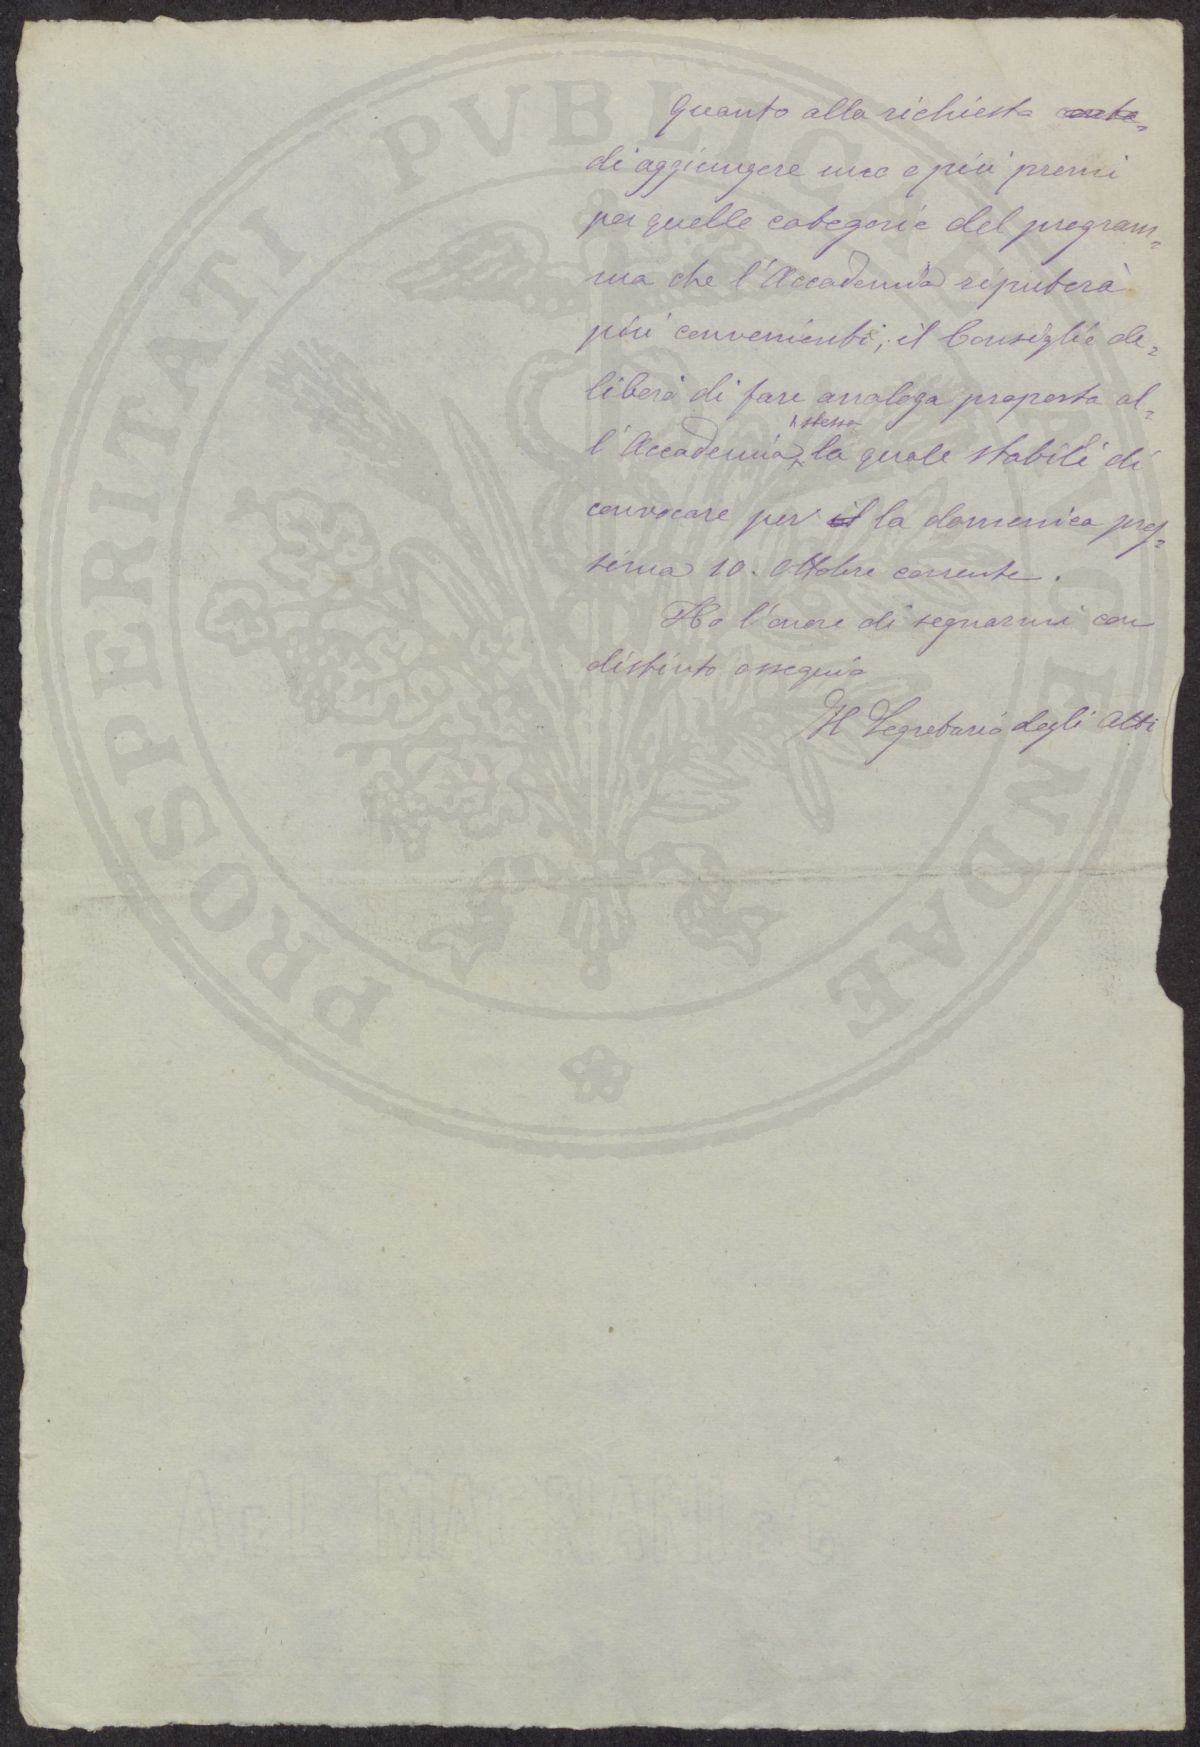 Quanto alla richiesta
di aggiungere uno o più premi
per quelle categorie del program=
ma che l'Accademia reputerà
più convenienti, il Consiglio de=
liberò di fare analoga proposta al=
l'Accademia stessa, la quale stabilì di
convocare per il la domenica pros=
sima 10. Ottobre corrente.
Ho l'onore di segnarmi con
distinto ossequio
Il Segretario degli Atti
PROSPERITATI PVBLICAE AVGENDAE